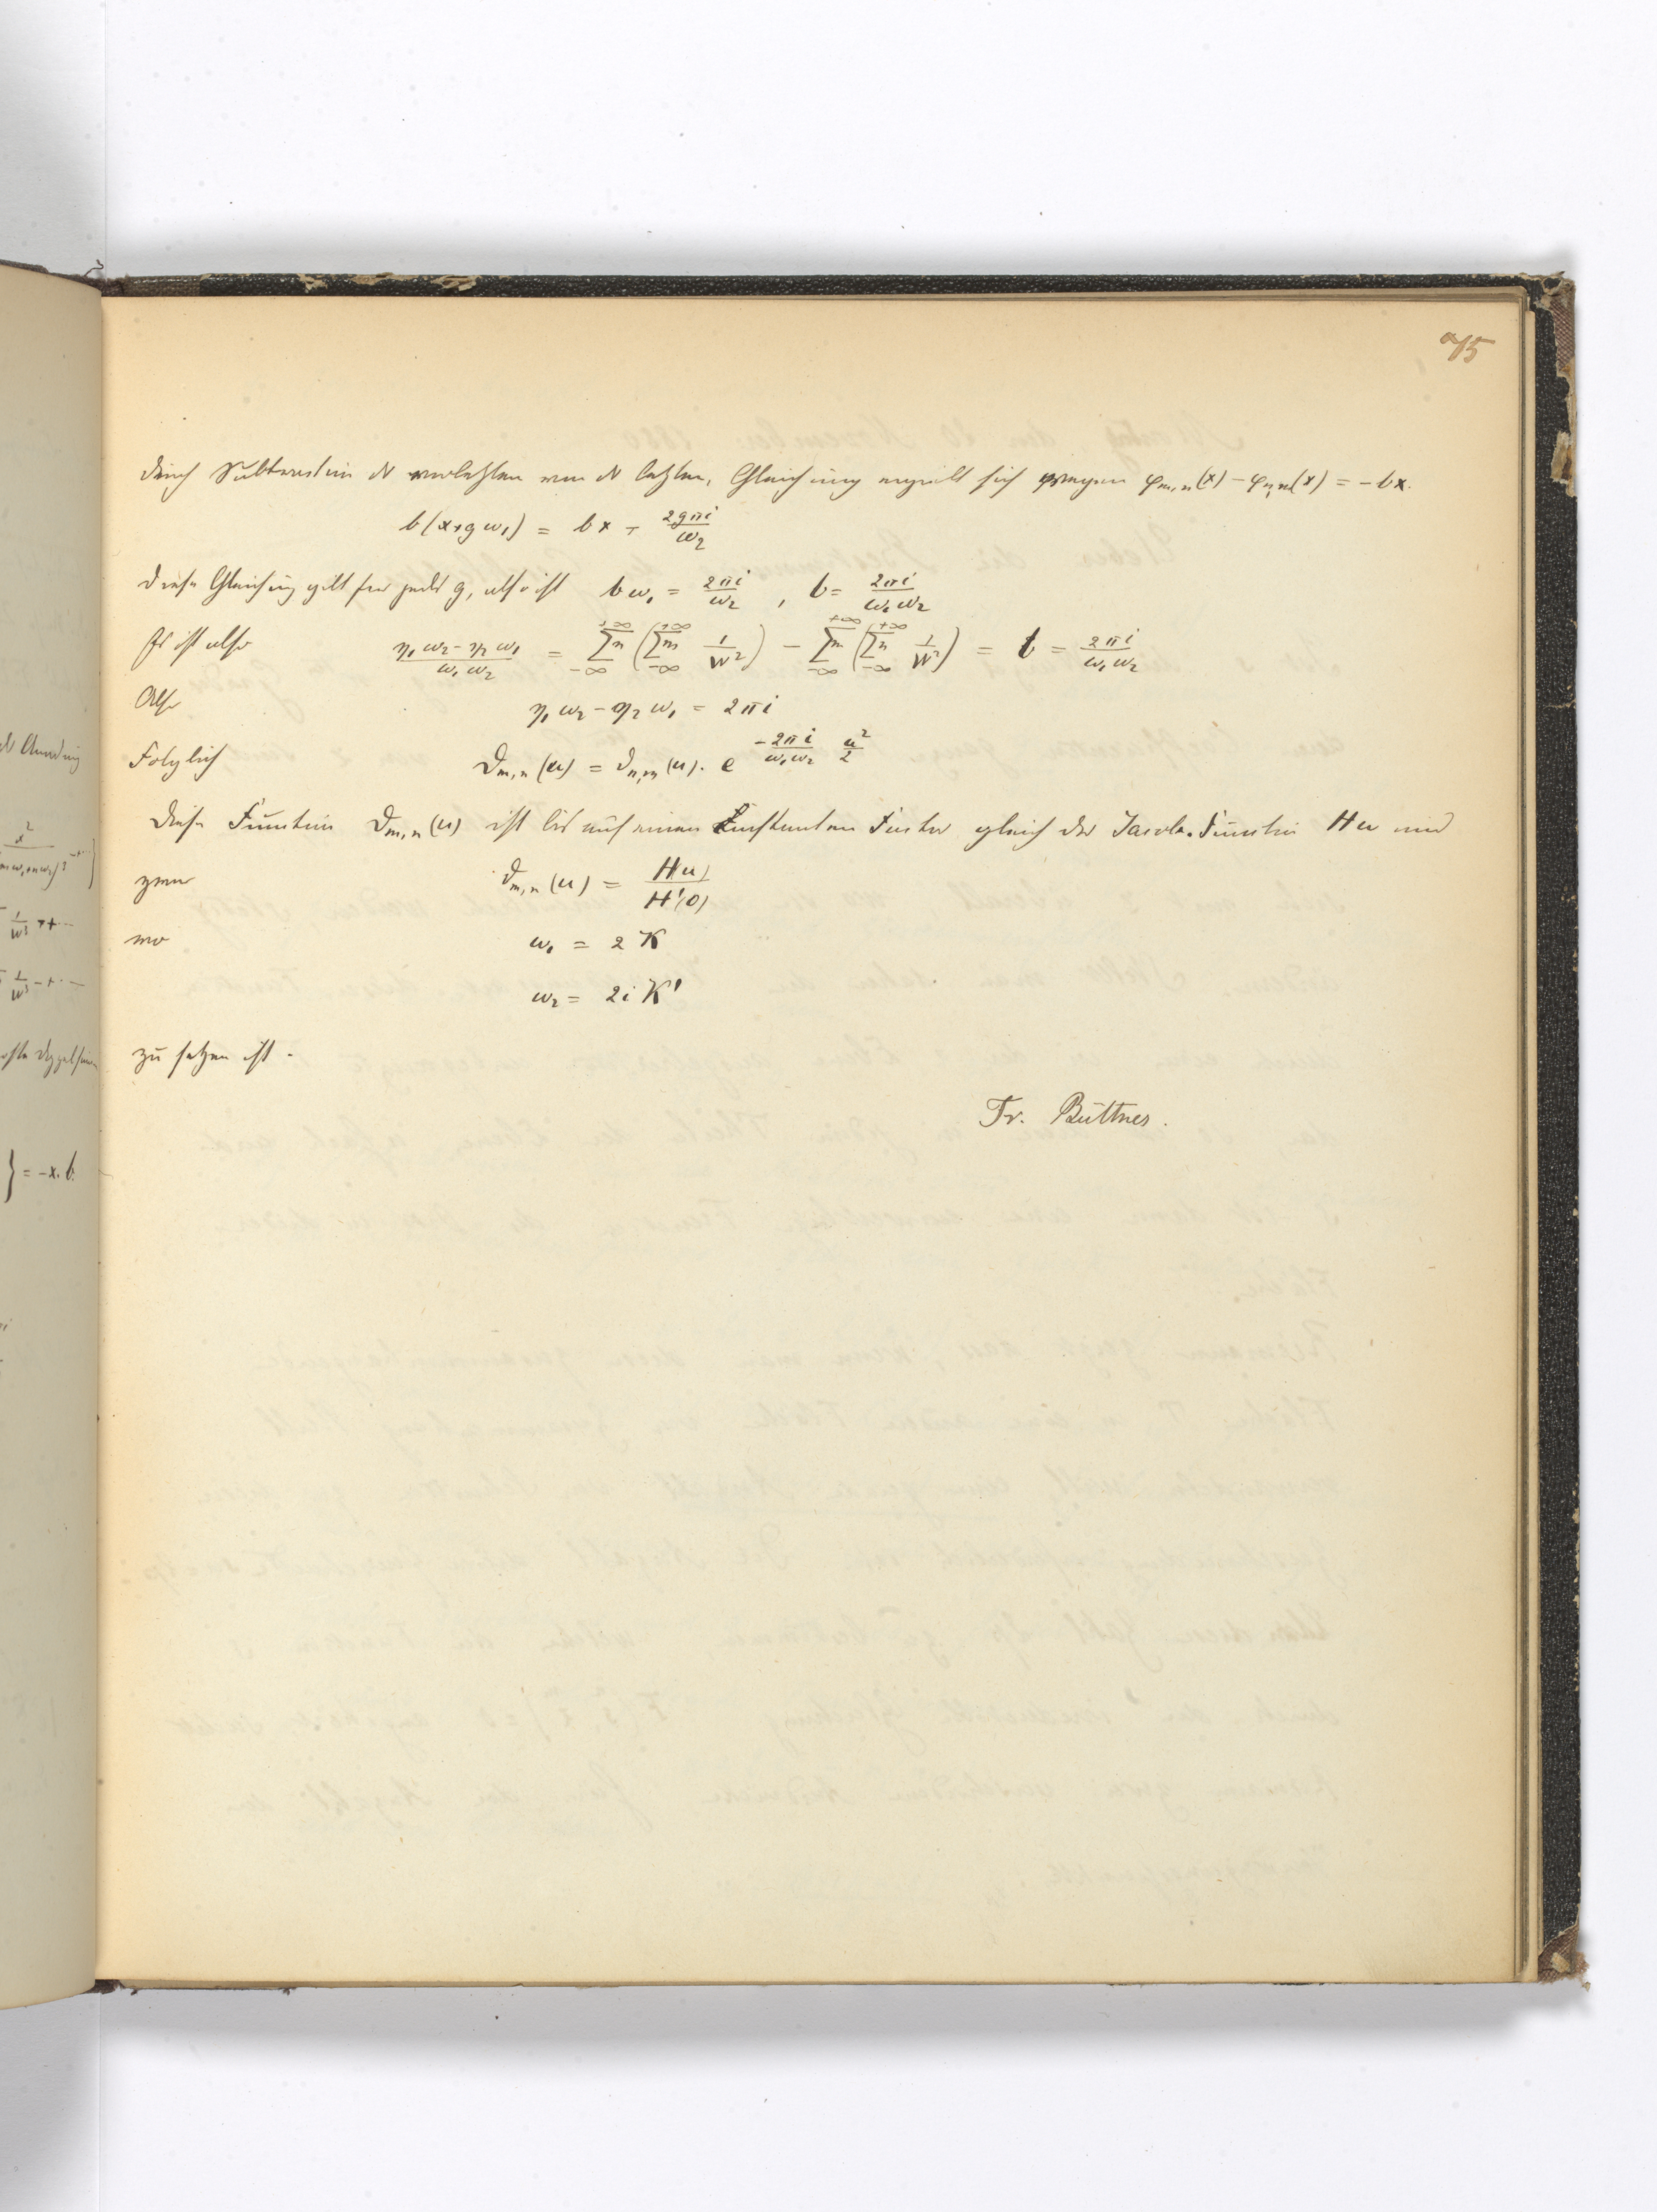 75
Durch Subtraction der vorletzten von der letzten Gleichung ergiebt sich wegen φ_{m,n}(x) − φ_{n,m}(x) = −bx.
b(x+gω₁) = bx + 2gπi/ω₂
Diese Gleichung gilt für jedes g, also ist bω₁ = 2πi/ω₂ , b = 2πi/ω₁ω₂
Es ist also (η₁ω₂ − η₂ω₁)/ω₁ω₂ = ∑n_{−∞}^{+∞} (∑m_{−∞}^{+∞} 1/w²) − ∑m_{−∞}^{+∞} (∑n_{−∞}^{+∞} 1/w²) = b = 2πi/ω₁ω₂
Also η₁ω₂ − η₂ω₁ = 2πi
Folglich ϑ_{m,n}(u) = ϑ_{n,m}(u). e^{−2πi/ω₁ω₂ u²/2}
Diese Function ϑ_{m,n}(u) ist bis auf einen constanten Factor gleich der Jacobi. Function Hu und
zwar ϑ_{m,n}(u) = H(u)/H'(0)
wo ω₁ = 2K
ω₂ = 2iK'
zu setzen ist.
Fr. Büttner.